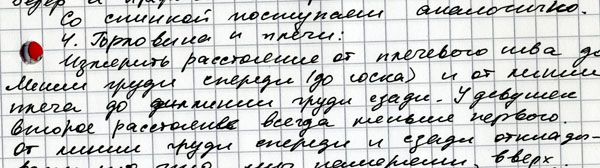 бедер и
Со спинкой поступаем аналогично.
4. Горловина и плечи:
Измерить расстояние от плечевого шва до
линии груди спереди (до соска) и от линии
плеча до линии груди сзади. У девушек
второе расстояние всегда меньше первого.
От линии груди спереди и сзади отклады-
вверх